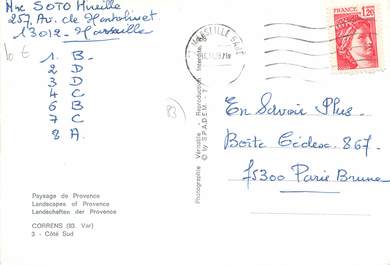 Mme SOTO Mireille
257, Av. de Montolivet
13012 - Marseille
10 €
1. B -
2 D
3 D
4 C
6 B
7 C
8 A.
Paysage de Provence
Landscapes of Provence
Landschaften der Provence
CORRENS (83. Var)
3 - Côté Sud
Photographie Véritable - Reproduction Interdite
© by S.P.A.D.E.M. - 7
83
MARSEILLE GARE
FRANCE
1,20
En Savoir Plus -
Boîte Cedex - 867 -
75300 Paris Brune